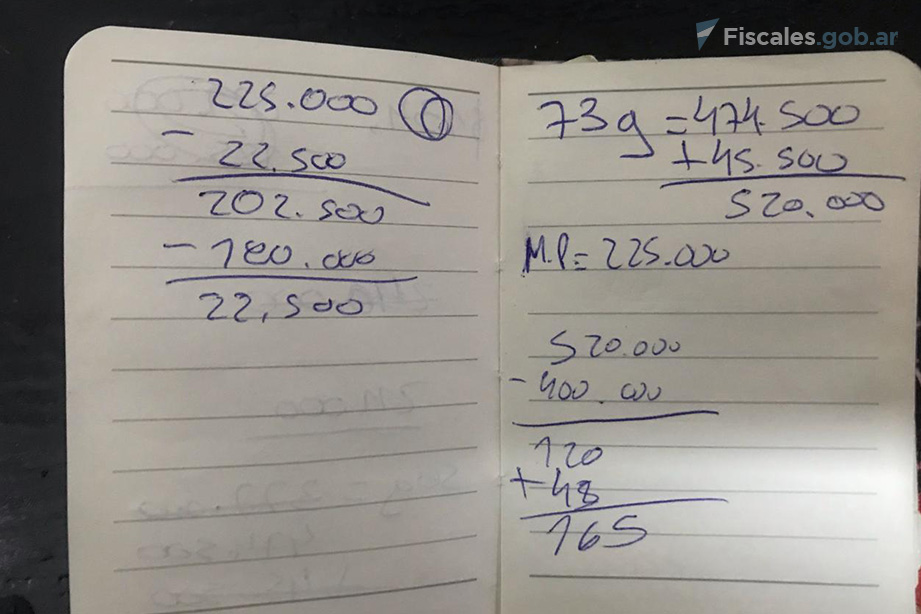 Fiscales.gob.ar
225.000
- 22.500
202.500
- 180.000
22.500
73g = 474.500
+ 45.500
520.000
M.P = 225.000
520.000
- 400.000
120
+ 45
165